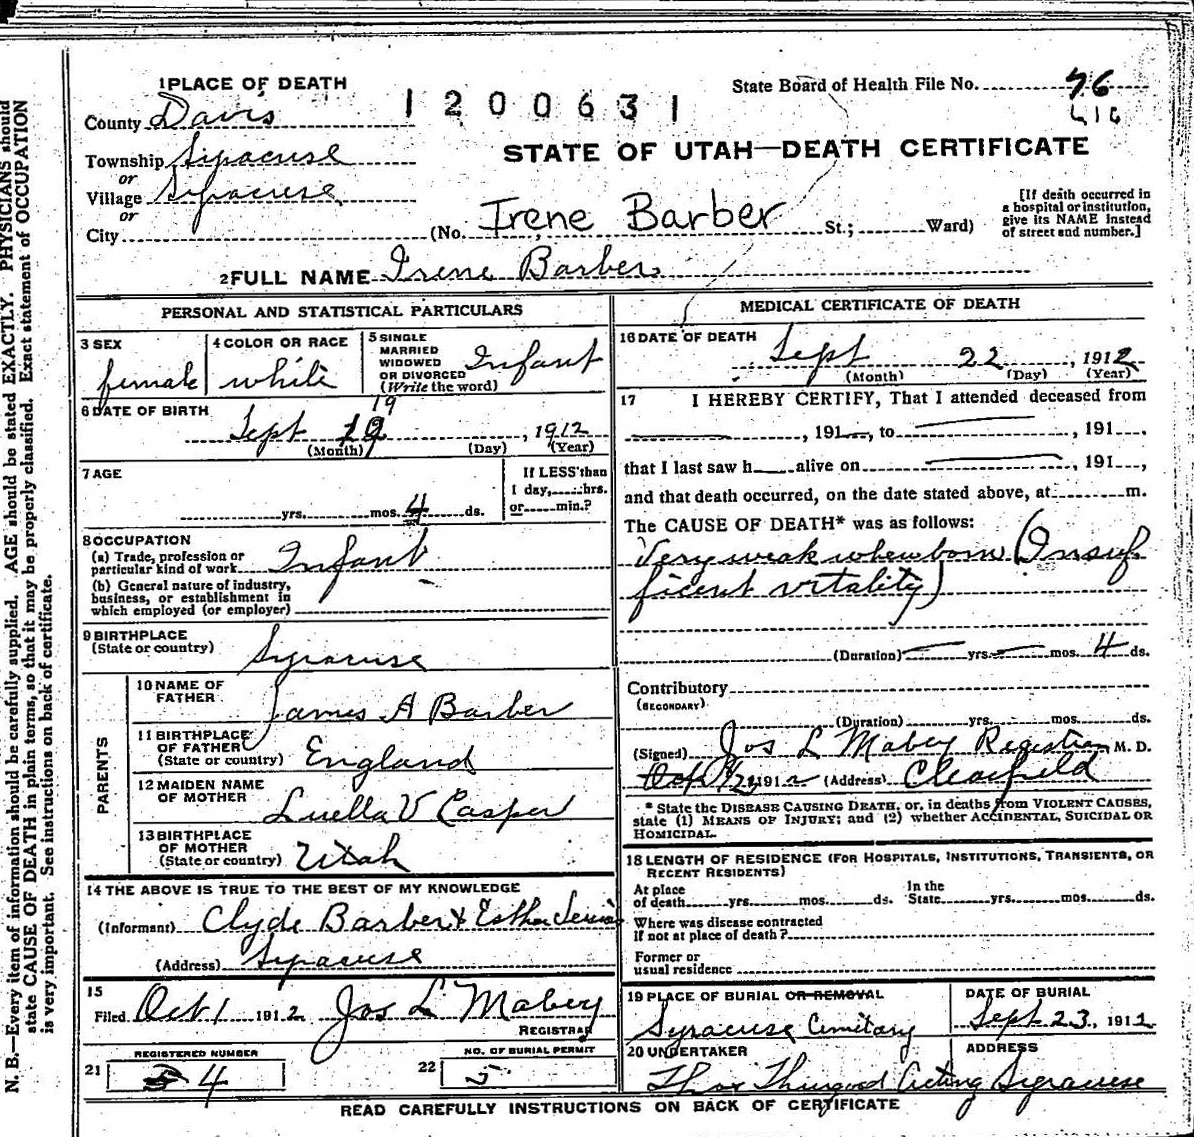 1 PLACE OF DEATH
1200631
State Board of Health File No. 76
County Davis
STATE OF UTAH—DEATH CERTIFICATE
Township Syracuse
or
Village Syracuse
or
City
(No. Irene Barber St.; Ward)
[If death occurred in
a hospital or institution,
give its NAME instead
of street and number.]
2 FULL NAME Irene Barber
PERSONAL AND STATISTICAL PARTICULARS
3 SEX
female
4 COLOR OR RACE
white
5 SINGLE
MARRIED
WIDOWED
OR DIVORCED
(Write the word)
Infant
6 DATE OF BIRTH
19
Sept 19, 1912
(Month) (Day) (Year)
7 AGE
yrs. mos. 4 ds.
If LESS than
1 day, hrs.
or min.?
8 OCCUPATION
(a) Trade, profession or
particular kind of work Infant
(b) General nature of industry,
business, or establishment in
which employed (or employer)
9 BIRTHPLACE
(State or country)
Syracuse
PARENTS
10 NAME OF
FATHER
James A Barber
11 BIRTHPLACE
OF FATHER
(State or country) England
12 MAIDEN NAME
OF MOTHER
Luella V Casper
13 BIRTHPLACE
OF MOTHER
(State or country) Utah
14 THE ABOVE IS TRUE TO THE BEST OF MY KNOWLEDGE
(Informant) Clyde Barber & Esther
(Address) Syracuse
15
Filed Oct 1 1912 Jos L Mabey
REGISTRAR
REGISTERED NUMBER
21 4
NO. OF BURIAL PERMIT
22 5
MEDICAL CERTIFICATE OF DEATH
16 DATE OF DEATH
Sept 22, 1912
(Month) (Day) (Year)
17 I HEREBY CERTIFY, That I attended deceased from
, 191 , to , 191 ,
that I last saw h alive on , 191 ,
and that death occurred, on the date stated above, at m.
The CAUSE OF DEATH* was as follows:
Very weak when born (Insuf
ficent vitality)
(Duration) yrs. mos. 4 ds.
Contributory
(SECONDARY)
(Duration) yrs. mos. ds.
(Signed) Jos L Mabey Registrar M. D.
Oct 1912 (Address) Clearfield
* State the DISEASE CAUSING DEATH, or, in deaths from VIOLENT CAUSES,
state (1) MEANS OF INJURY; and (2) whether ACCIDENTAL, SUICIDAL OR
HOMICIDAL.
18 LENGTH OF RESIDENCE (FOR HOSPITALS, INSTITUTIONS, TRANSIENTS, OR
RECENT RESIDENTS)
At place
of death yrs. mos. ds.
In the
State yrs. mos. ds.
Where was disease contracted
if not at place of death?
Former or
usual residence
19 PLACE OF BURIAL OR REMOVAL
Syracuse Cemitary
DATE OF BURIAL
Sept 23, 1912
20 UNDERTAKER
Thos Thurgood Acting
ADDRESS
Syracuse
READ CAREFULLY INSTRUCTIONS ON BACK OF CERTIFICATE
N. B.—Every item of information should be carefully supplied. AGE should be stated EXACTLY. PHYSICIANS should
state CAUSE OF DEATH in plain terms, so that it may be properly classified. Exact statement of OCCUPATION
is very important. See instructions on back of certificate.